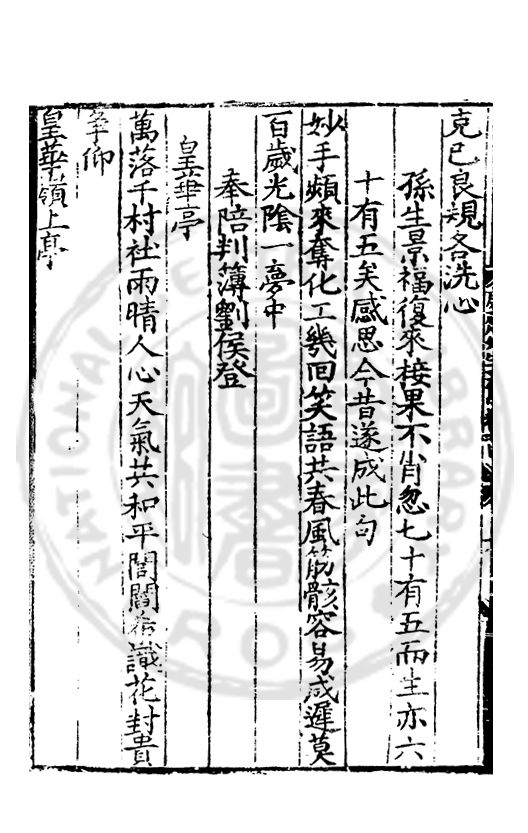 克己良規各洗心
孫生景福復來接果不肖忽七十有五而生亦六
十有五矣感思今昔遂成此句
妙手頻來奪化工幾回笑語共春風筋骸容易成遲莫
百歲光陰一夢中
奉陪判簿劉侯登
皇華亭
萬落千村社雨晴人心天氣共和平閭閻希識花封貴
爭仰
皇華嶺上亭